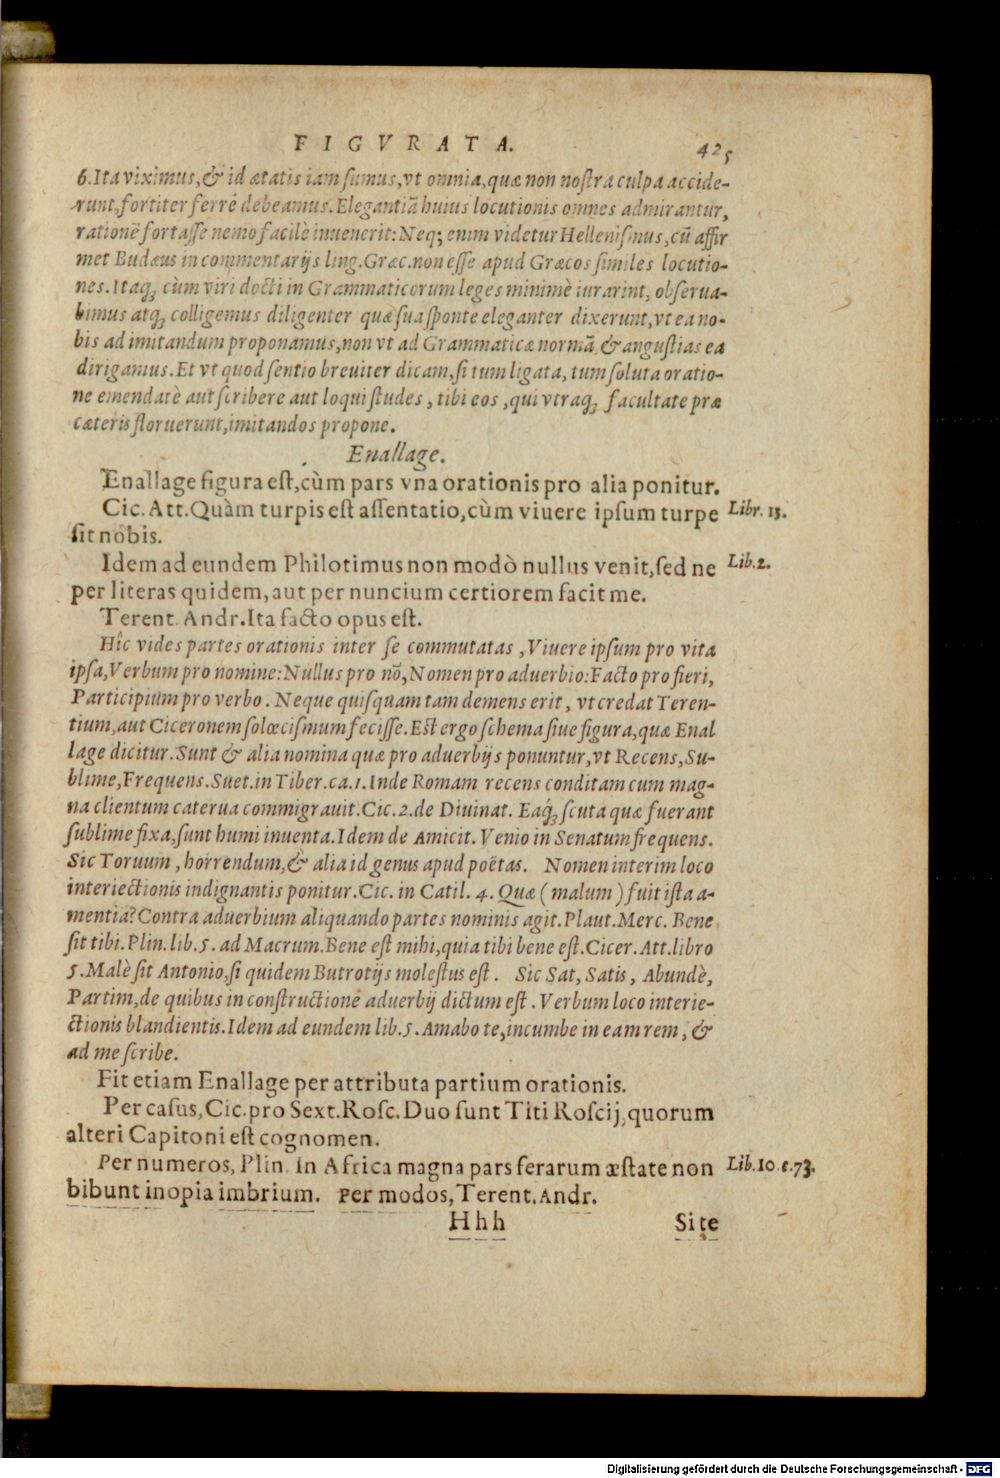 FIGVRATA. 425
6. Ita viximus, & id ætatis iam ſumus, vt omnia, quæ non noſtra culpa accide-
runt, fortiter ferre debeamus. Elegantiā huius locutionis omnes admirantur,
rationē fortaſſe nemo facilè inuenerit: Neq; enim videtur Helleniſmus, cū affir
met Budæus in commentarijs ling. Græc. non eſſe apud Græcos ſimiles locutio-
nes. Itaq; cùm viri docti in Grammaticorum leges minimè iurarint, obſerua-
bimus atq; colligemus diligenter quæ ſua ſponte eleganter dixerunt, vt ea no-
bis ad imitandum proponamus, non vt ad Grammaticæ normā & anguſtias ea
dirigamus. Et vt quod ſentio breuiter dicam, ſi tum ligata, tum ſoluta oratio-
ne emendatè aut ſcribere aut loqui ſtudes, tibi eos, qui vtraq; facultate præ
cæteris floruerunt, imitandos propone.
Enallage.
Enallage figura eſt, cùm pars vna orationis pro alia ponitur.
Cic. Att. Quàm turpis eſt aſſentatio, cùm viuere ipſum turpe Libr. 13.
ſit nobis.
Idem ad eundem Philotimus non modò nullus venit, ſed ne Lib. 2.
per literas quidem, aut per nuncium certiorem facit me.
Terent. Andr. Ita facto opus eſt.
Hîc vides partes orationis inter ſe commutatas, Viuere ipſum pro vita
ipſa, Verbum pro nomine: Nullus pro nō, Nomen pro aduerbio: Facto pro fieri,
Participium pro verbo. Neque quiſquam tam demens erit, vt credat Teren-
tium, aut Ciceronem ſolœciſmum feciſſe. Eſt ergo ſchema ſiue figura, quæ Enal
lage dicitur. Sunt & alia nomina quæ pro aduerbijs ponuntur, vt Recens, Su-
blime, Frequens. Suet. in Tiber. ca. 1. Inde Romam recens conditam cum mag-
na clientum caterua commigrauit. Cic. 2. de Diuinat. Eaq́; ſcuta quæ fuerant
ſublime fixa, ſunt humi inuenta. Idem de Amicit. Venio in Senatum frequens.
Sic Toruum, horrendum, & alia id genus apud poëtas. Nomen interim loco
interiectionis indignantis ponitur. Cic. in Catil. 4. Quæ (malum) fuit iſta a-
mentia? Contra aduerbium aliquando partes nominis agit. Plaut. Merc. Bene
ſit tibi. Plin. lib. 5. ad Macrum. Bene eſt mihi, quia tibi bene eſt. Cicer. Att. libro
5. Malè ſit Antonio, ſi quidem Butrotijs moleſtus eſt. Sic Sat, Satis, Abundè,
Partim, de quibus in conſtructione aduerbij dictum eſt. Verbum loco interie-
ctionis blandientis. Idem ad eundem lib. 5. Amabo te, incumbe in eam rem, &
ad me ſcribe.
Fit etiam Enallage per attributa partium orationis.
Per caſus, Cic. pro Sext. Roſc. Duo ſunt Titi Roſcij, quorum
alteri Capitoni eſt cognomen.
Per numeros, Plin. In Africa magna pars ferarum æſtate non Lib. 10. c. 73.
bibunt inopia imbrium. Per modos, Terent. Andr.
Hhh Site
Digitalisierung gefördert durch die Deutsche Forschungsgemeinschaft - DFG